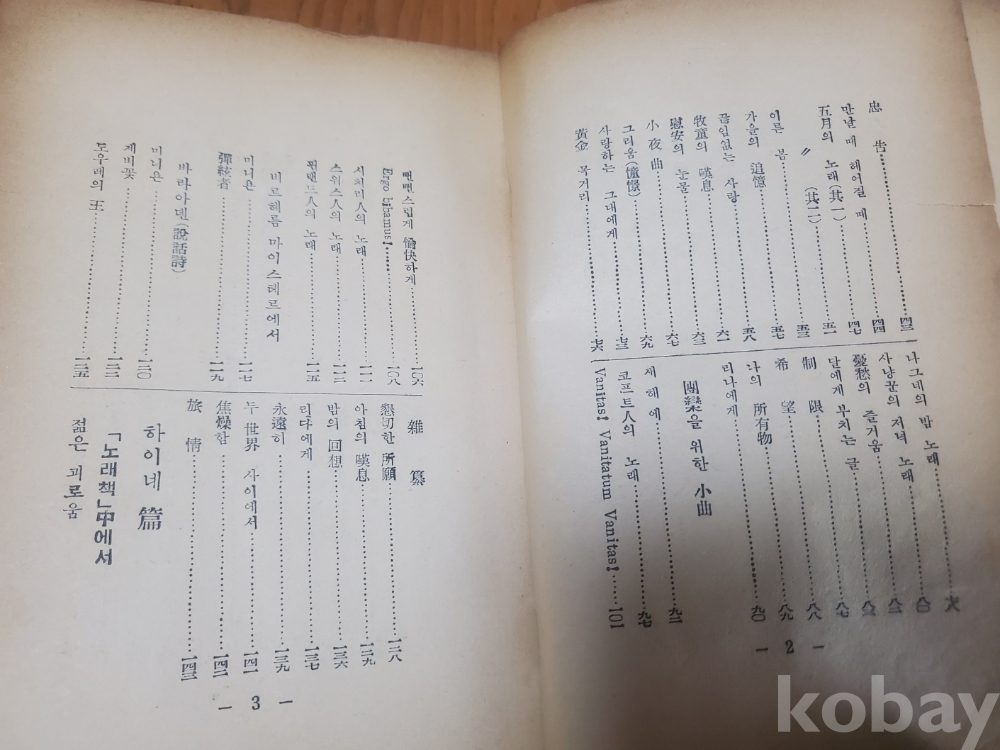 忠 告 四三
만날 때 헤어질 때 四四
五月의 노래(其一) 四七
〃 (其二) 五一
이른 봄 五三
가을의 追憶 五七
끊임없는 사랑 五八
牧童의 嘆息 六一
慰安의 눈물 六三
小夜曲 六七
그리움(憧憬) 六九
사랑하는 그대에게 七三
黃金 목거리 七六
나그네의 밤 노래
사냥꾼의 저녁 노래 八〇
憂愁의 즐거움
달에게 부치는 글 八三
制 限 八七
希 望 八八
나의 所有物 八九
리나에게 九〇
團欒을 위한 小曲
새해에 九三
코프트人의 노래 九七
Vanitas! Vanitatum Vanitas! 101
— 2 —
뻔뻔스럽게 愉快하게 一〇六
Ergo bibamus! 一〇八
人의 노래 一一一
스위스人의 노래
핀랜드人의 노래 一一五
비르헤름 마이스테르에서
미니욘 一一七
彈絃者 一一九
바라아덴(說話詩)
미니욘 一二〇
제비꽃
도우레의 王 一二五
雜 纂
懇切한 所願 一二八
아침의 嘆息 一二九
밤의 回想 一三六
리다에게 一三七
永遠히 一三九
두 世界 사이에서 一四一
焦燥한 一四二
旅 情 一四三
하이네 篇
「노래책」中에서
젊은 괴로움
— 3 —
kobay